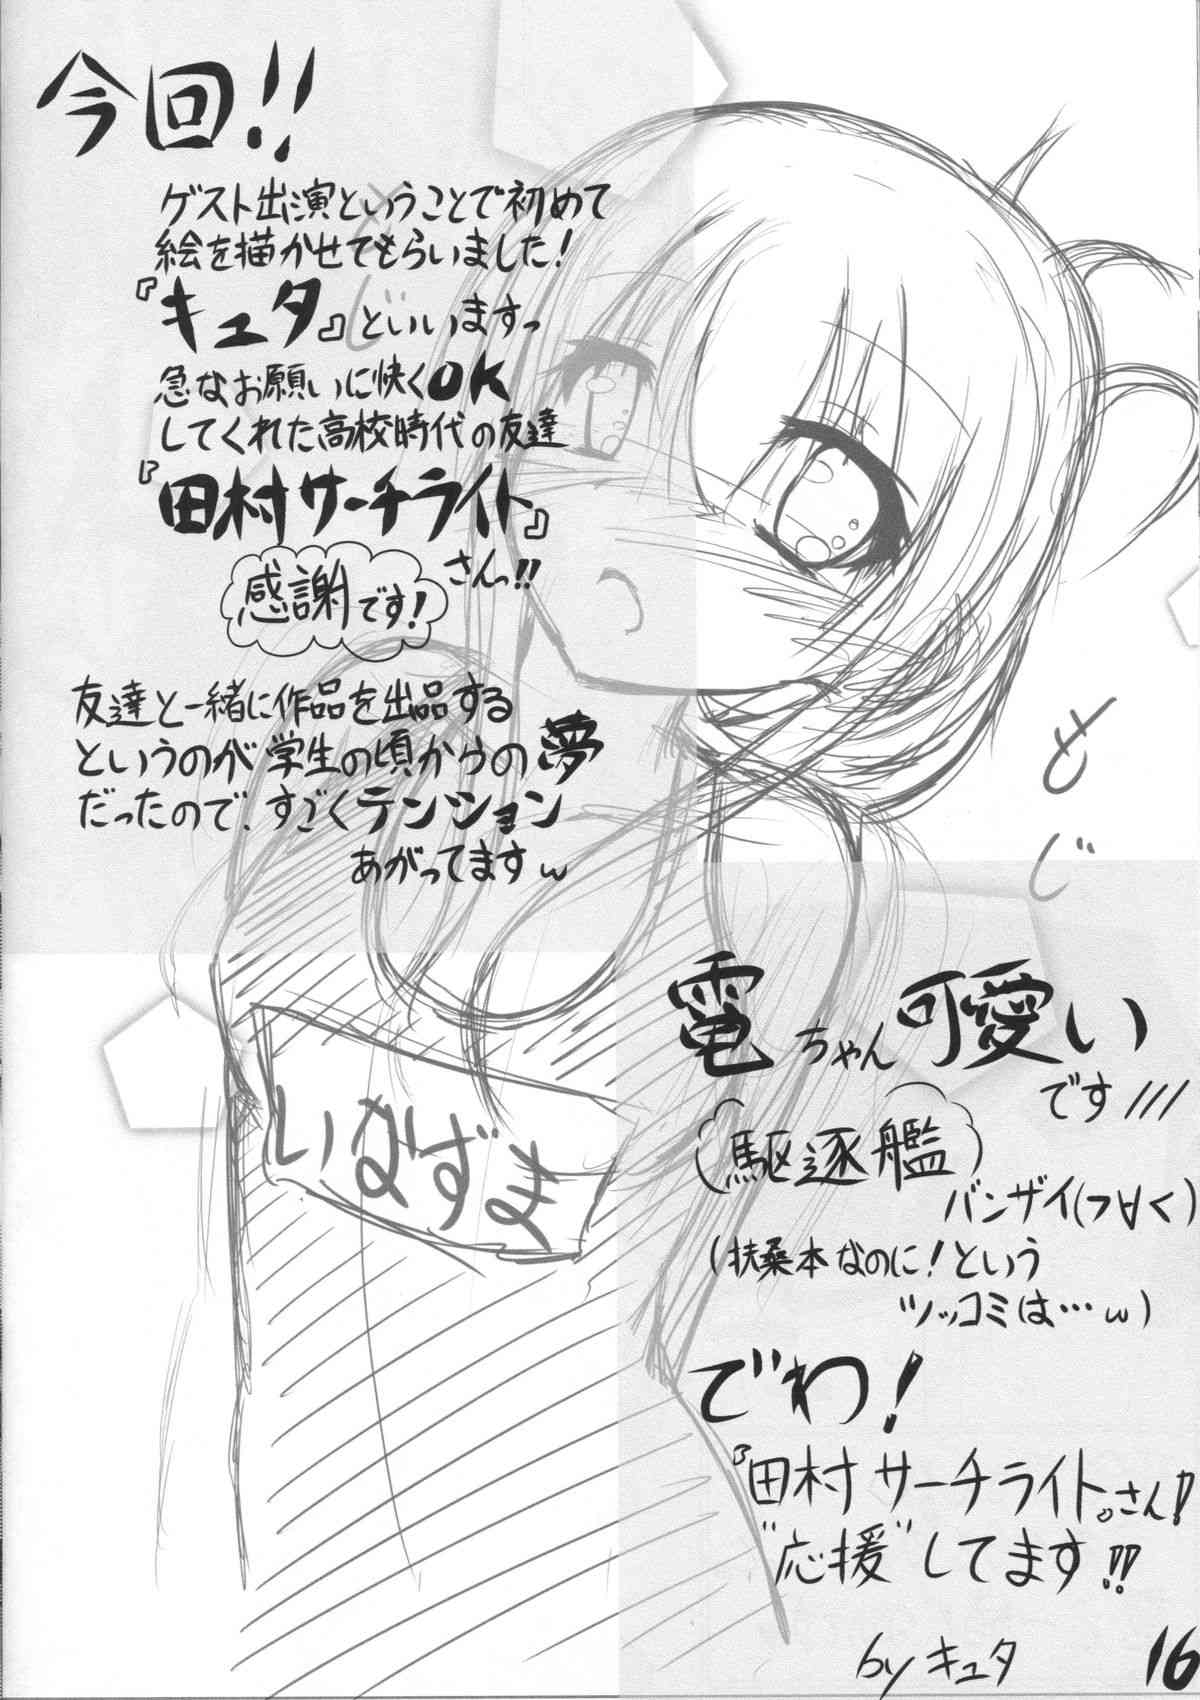 今回!!
ゲスト出演ということで初めて
絵を描かせてもらいました!
『キュタ』といいますっ
急なお願いに快くOK
してくれた高校時代の友達
『田村サーチライト』
さんっ!!
感謝です!
友達と一緒に作品を出品する
というのが学生の頃からの夢
だったので、すごくテンション
あがってますw
もじ
もじ
いなずま
電ちゃん可愛い
です///
(駆逐艦)
バンザイ(つ∀く)
(扶桑本なのに!という
ツッコミは…w)
でわ!
『田村サーチライト』さん!
"応援"してます!!
by キュタ
16